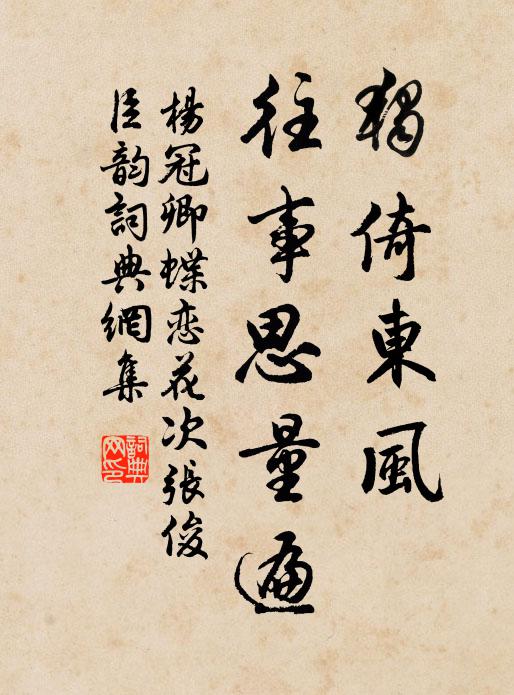 獨倚東風
往事思量遍
楊冠卿蝶恋花次張俊
臣韵詞典網集
詞典网印